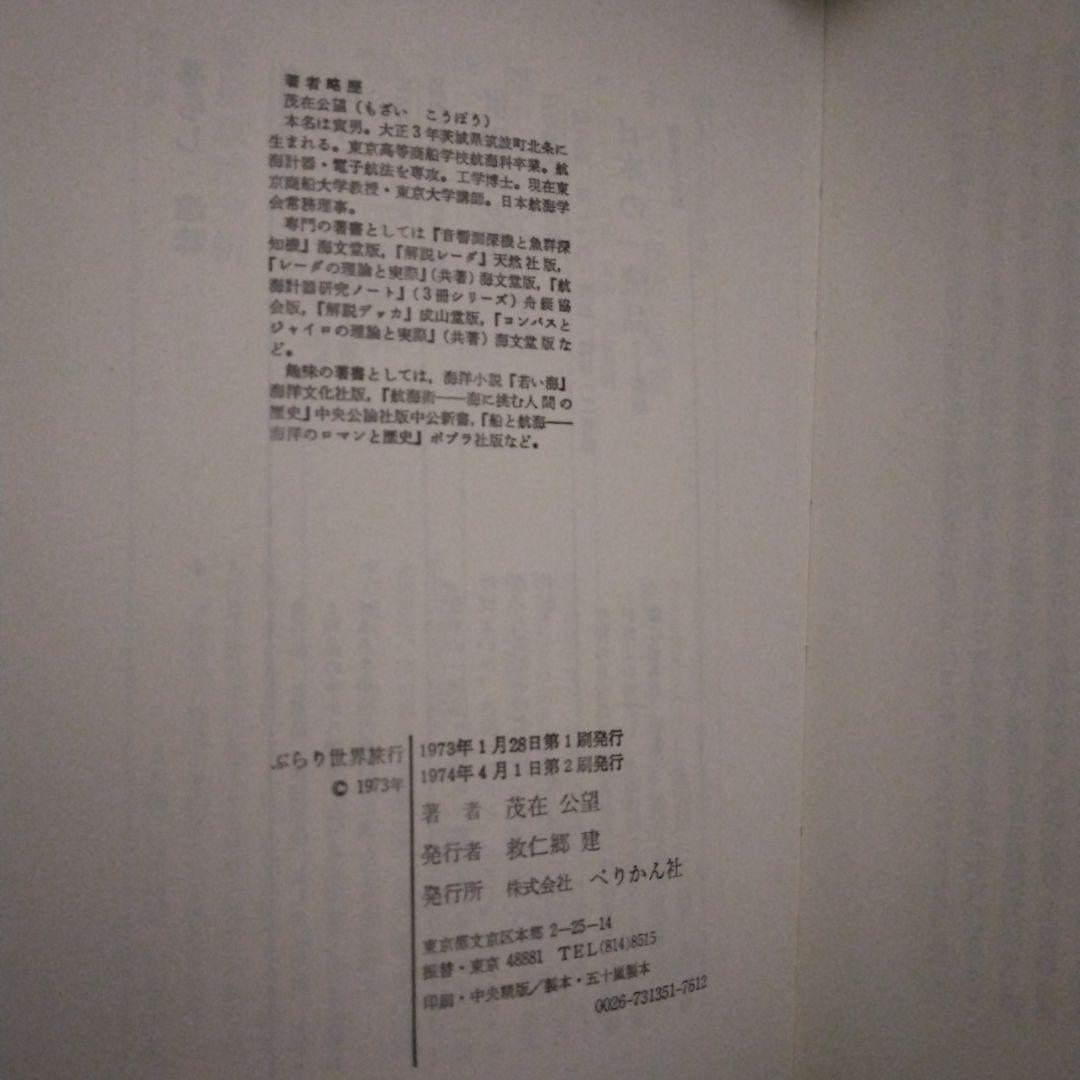 著者略歴
茂在公望(もざい こうぼう)
本名は寅男。大正3年茨城県筑波町北条に
生まれる。東京高等商船学校航海科卒業。航
海計器・電子航法を専攻。工学博士。現在東
京商船大学教授・東京大学講師。日本航海学
会常務理事。
専門の著書としては『音響測深機と魚群探
知機』海文堂版,『解説レーダ』天然社版,
『レーダの理論と実際』(共著)海文堂版,『航
海計器研究ノート』(3冊シリーズ)舟艇協
会版,『解説デッカ』成山堂版,『コンパスと
ジャイロの理論と実際』(共著)海文堂版な
ど。
趣味の著書としては,海洋小説『若い海』
海洋文化社版,『航海術――海に挑む人間の
歴史』中央公論社版中公新書,『船と航海――
海洋のロマンと歴史』ポプラ社版など。
ぶらり世界旅行
© 1973年
1973年1月28日第1刷発行
1974年4月1日第2刷発行
著 者 茂在 公望
発行者 救仁郷 建
発行所 株式会社 ぺりかん社
東京都文京区本郷 2―25―14
振替・東京 48881 TEL(814)8515
印刷・中央精版/製本・五十嵐製本
0026-731351-7612